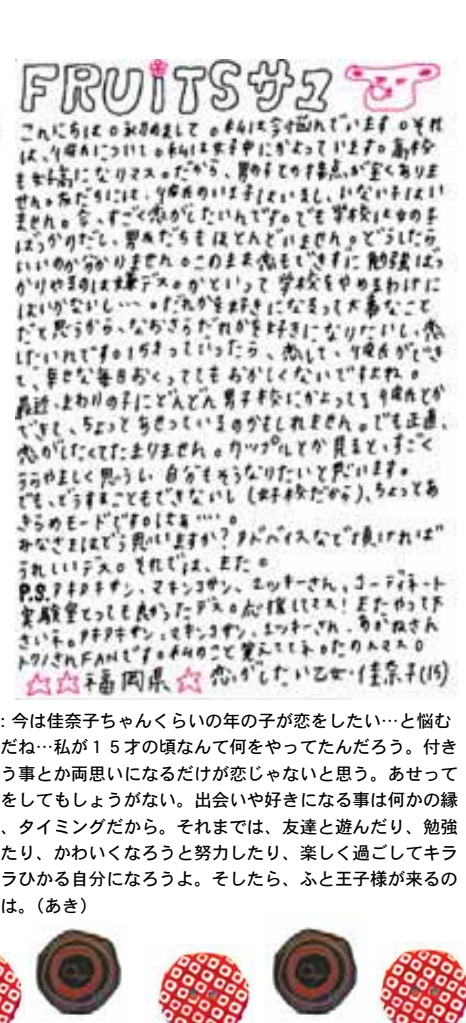 FRUiTSサマ
こんにちは。永初めまして。私は今悩んでいます。それ
は、彼氏について。私は女子中にかよっています。高校
も女子高になりマス。だから、男の子との接点が全くありま
せん。友だちには、彼氏のいる子はいるし、いない子はい
ません。今、すごく恋がしたいんです。でも学校は女の子
ばっかりだし、男友だちもほとんどいません。どうしたら
いいのか分かりません。このまま恋もできずに勉強ばっ
かりやるのは嫌デス。かといって学校をやめるわけに
はいかないし…。だれかを好きになるって大事なこと
だと思うから、なおさらだれかを好きになりたいし、恋
したいんです。15才っていったら、恋して、彼氏ができ
て、幸せな毎日おくっててもおかしくないですよね。
最近、まわりの子にどんどん男子校にかよってる彼氏とか
できて、ちょっとあせっているのかもしれません。でも正直、
恋がしたくてたまりません。カップルとか見ると、すごく
うらやましく思うし自分もそうなりたいと思います。
でも、どうすることもできないし(女子校だから)、ちょっとあ
きらめモードです。はぁ…。
みなさまはどう思いますか?アドバイスなど頂ければ
うれしいデス。それでは、また。
P.S.アキアキサン、マキンコサン、エッキーさん、コーディネート
実験室とっても良かったデス。応援してマス!またやって下
さいネ。アキアキサン、マキンコサン、エッキーさん、あかねさん
トクノさんFANです。私のこと覚えててネ。たのんマス。
福岡県 恋がしたい乙女・佳奈子(15)
:今は佳奈子ちゃんくらいの年の子が恋をしたい…と悩む
だね…私が15才の頃なんて何をやってたんだろう。付き
う事とか両思いになるだけが恋じゃないと思う。あせって
をしてもしょうがない。出会いや好きになる事は何かの縁
、タイミングだから。それまでは、友達と遊んだり、勉強
たり、かわいくなろうと努力したり、楽しく過ごしてキラ
ラひかる自分になろうよ。そしたら、ふと王子様が来るの
は。(あき)